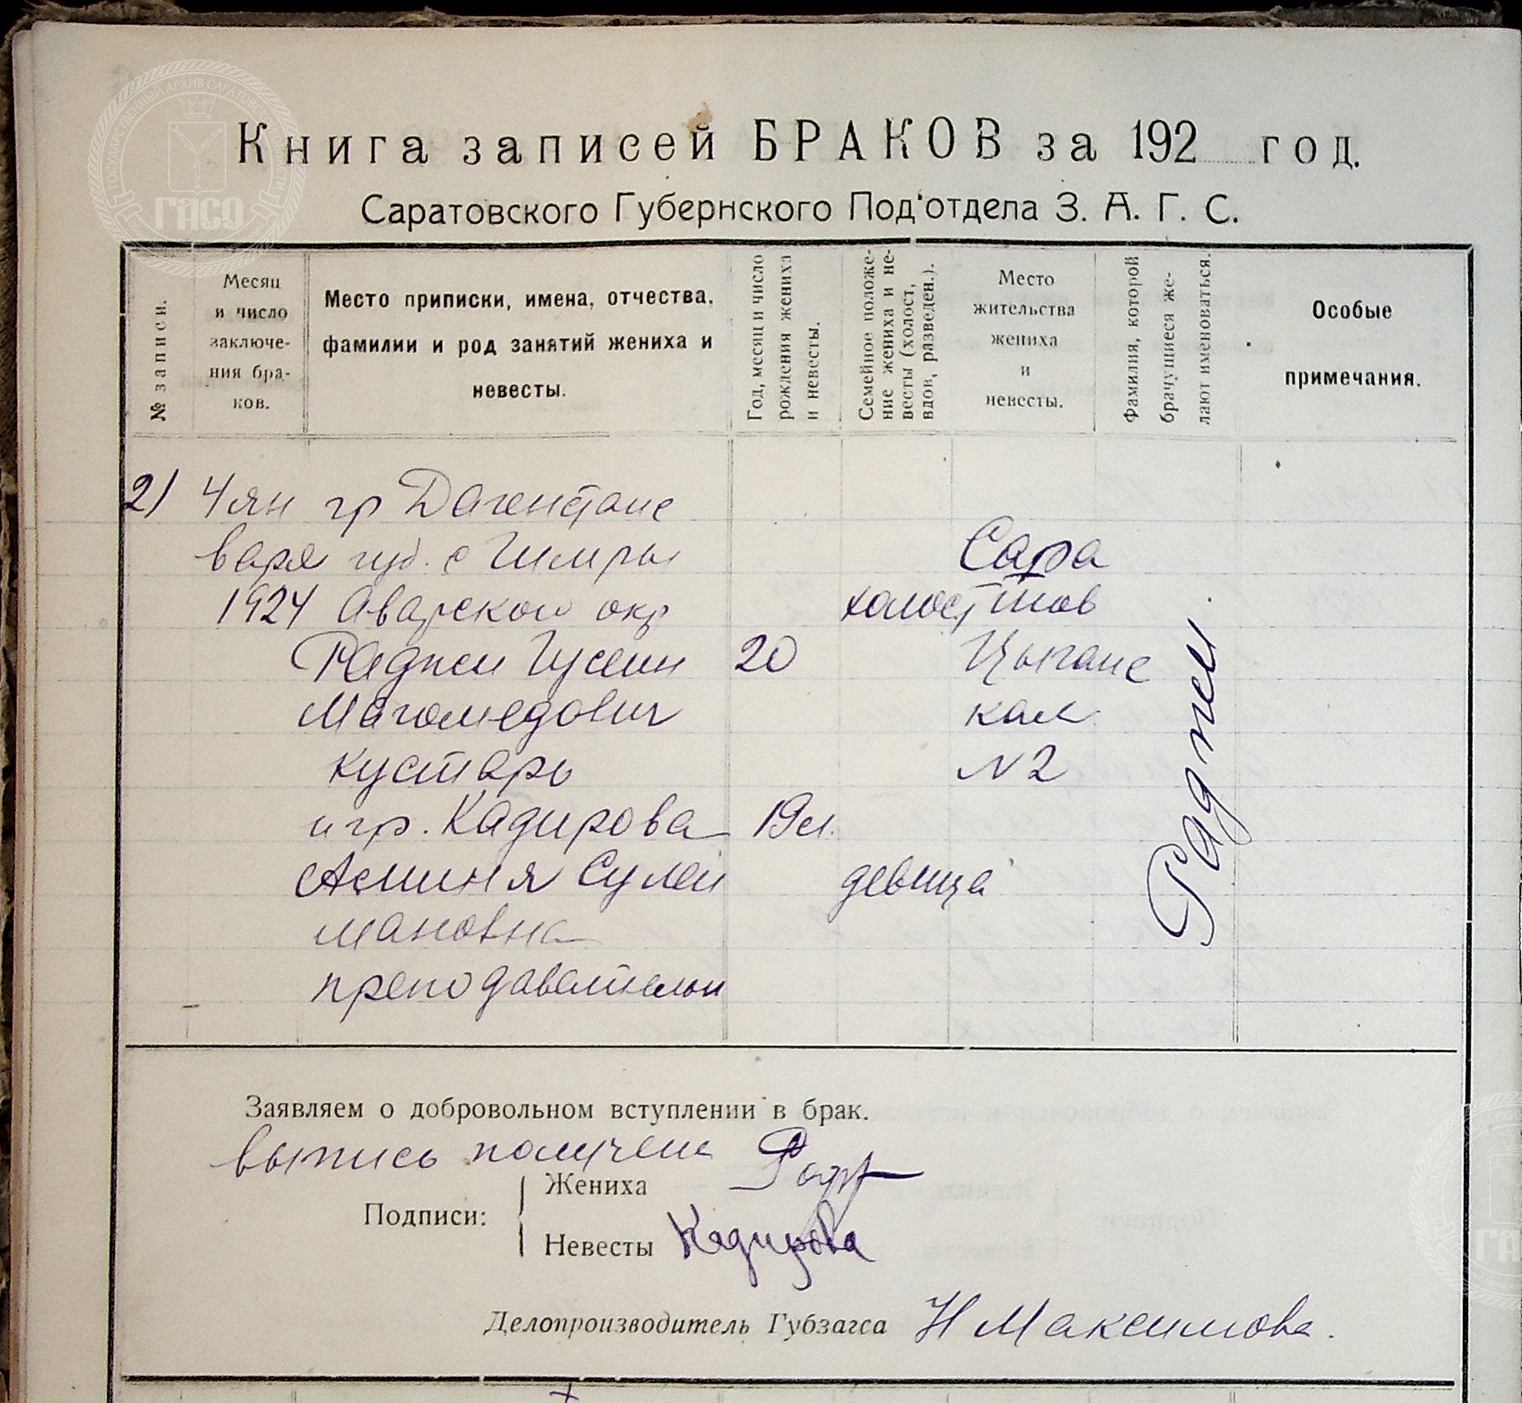 ГОСУДАРСТВЕННЫЙ АРХИВ САРАТОВСКОЙ
ГАСО
Книга записей БРАКОВ за 192 год.
Саратовского Губернского Под'отдела З. А. Г. С.
№ записи.
Месяц
и число
заключе-
ния бра-
ков.
Место приписки, имена, отчества,
фамилии и род занятий жениха и
невесты.
Год, месяц и число
рождения жениха
и невесты.
Семейное положе-
ние жениха и не-
весты (холост,
вдов, разведен.).
Место
жительства
жениха
и
невесты.
Фамилия, которой
брачущиеся же-
лают именоваться.
Особые
примечания.
2) 4 ян гр Дагенстане
варя губ. с Гимры Сара
1924 Аварском окр холост тов
Раджи Гусеин 20 Цыганс
Магомедович кая
кустарь N 2
и гр. Кадирова 19 л.
Асминя Сулей девица
мановна
Раджи.
Заявляем о добровольном вступлении в брак.
выпись получена
Подписи:
Жениха Радж
Невесты Кадирова
Делопроизводитель Губзагса Н Максимова.